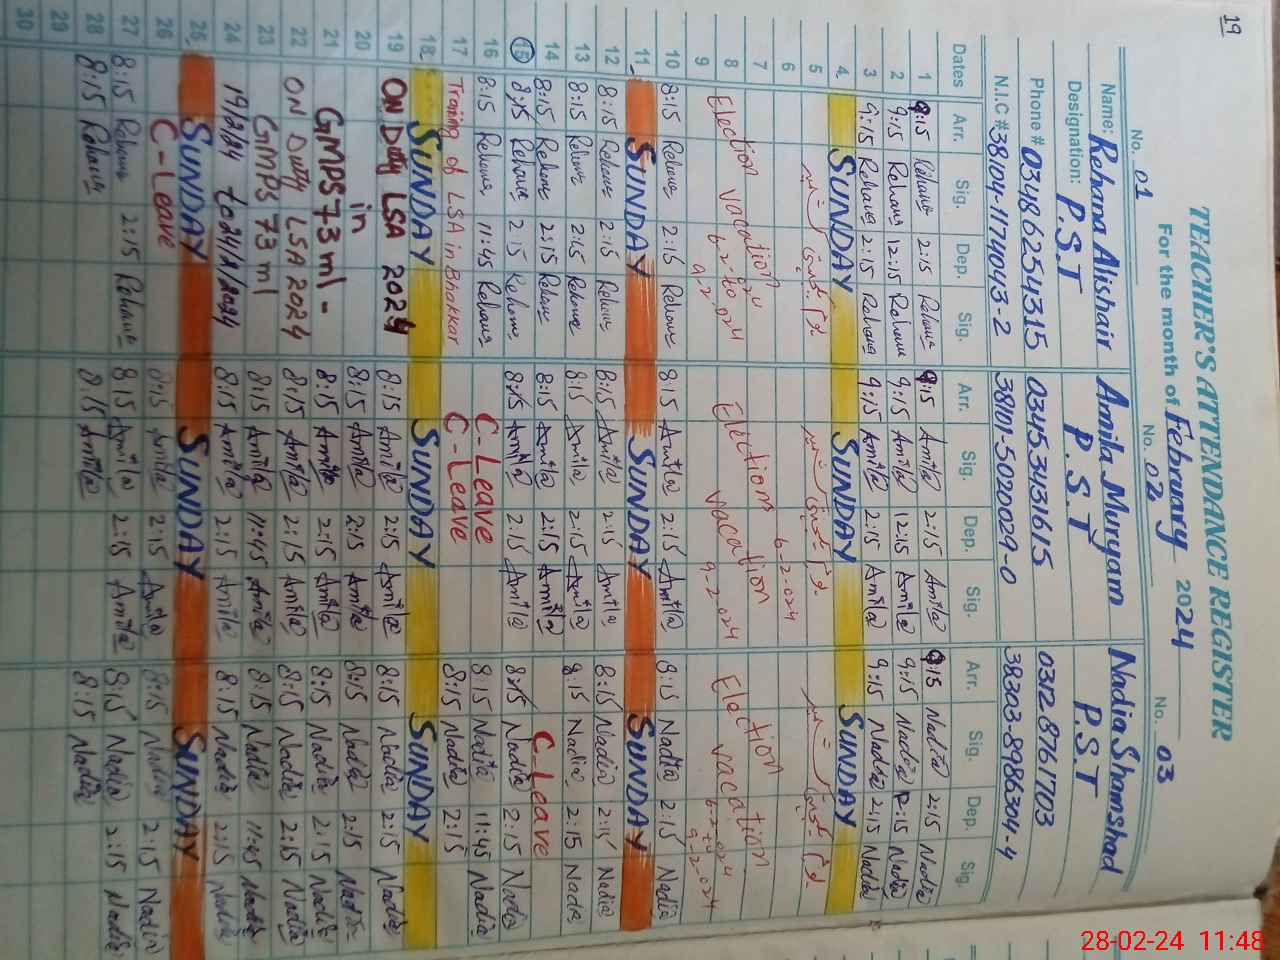 19
TEACHER'S ATTENDANCE REGISTER
For the month of February 2024
No. 01 No. 02 No. 03
Name: Rehana Alishair Amila Muryam Nadia Shamshad
Designation: P.S.T P.S.T P.S.T
Phone # 03486254315 03453431615 03128761703
N.I.C # 38104-1174043-2 38101-5020029-0 38303-8986304-4
Dates Arr. Sig. Dep. Sig. Arr. Sig. Dep. Sig. Arr. Sig. Dep. Sig.
1 9:15 Rehana 2:15 Rehana 9:15 Amila 2:15 Amila 9:15 Nadia 2:15 Nadia
2 9:15 Rehana 12:15 Rehana 9:15 Amila 12:15 Amila 9:15 Nadia 12:15 Nadia
3 9:15 Rehana 2:15 Rehana 9:15 Amila 2:15 Amila 9:15 Nadia 2:15 Nadia
4 SUNDAY SUNDAY SUNDAY
5
6
7
8 Election vacation Election vacation 6-2-024 Election vacation
9 9-2-024 9-2-024
10 8:15 Rehana 2:15 Rehana 8:15 Amila 2:15 Amila 8:15 Nadia 2:15 Nadia
11 SUNDAY SUNDAY SUNDAY
12 8:15 Rehana 2:15 Rehana 8:15 Amila 2:15 Amila 8:15 Nadia 2:15 Nadia
13 8:15 Rehana 2:15 Rehana 8:15 Amila 2:15 Amila 8:15 Nadia 2:15 Nadia
14 8:15 Rehana 2:15 Rehana 8:15 Amila 2:15 Amila C-Leave
15 8:15 Rehana 2:15 Rehana 8:15 Amila 2:15 Amila 8:15 Nadia 2:15 Nadia
16 8:15 Rehana 11:45 Rehana C-Leave 8:15 Nadia 11:45 Nadia
17 Traing of LSA in Bhakkar C-Leave 8:15 Nadia 2:15
18 SUNDAY SUNDAY SUNDAY
19 ON Duty LSA 2024 8:15 Amila 2:15 Amila 8:15 Nadia 2:15 Nadia
20 in 8:15 Amila 2:15 Amila 8:15 Nadia 2:15 Nadia
21 GMPS 73 ml - 8:15 Amila 2:15 Amila 8:15 Nadia 2:15 Nadia
22 ON Duty LSA 2024 8:15 Amila 2:15 Amila 8:15 Nadia 2:15 Nadia
23 GMPS 73 ml 8:15 Amila 11:45 Amila 8:15 Nadia 11:45 Nadia
24 19/2/24 to 24/2/2024 8:15 Amila 2:15 Amila 8:15 Nadia 2:15 Nadia
25 SUNDAY SUNDAY SUNDAY
26 C-Leave 8:15 Amila 2:15 Amila 8:15 Nadia 2:15 Nadia
27 8:15 Rehana 2:15 Rehana 8:15 Amila 2:15 Amila 8:15 Nadia 2:15 Nadia
28 8:15 Rehana 8:15 Amila 8:15 Nadia
29
30
28-02-24 11:48